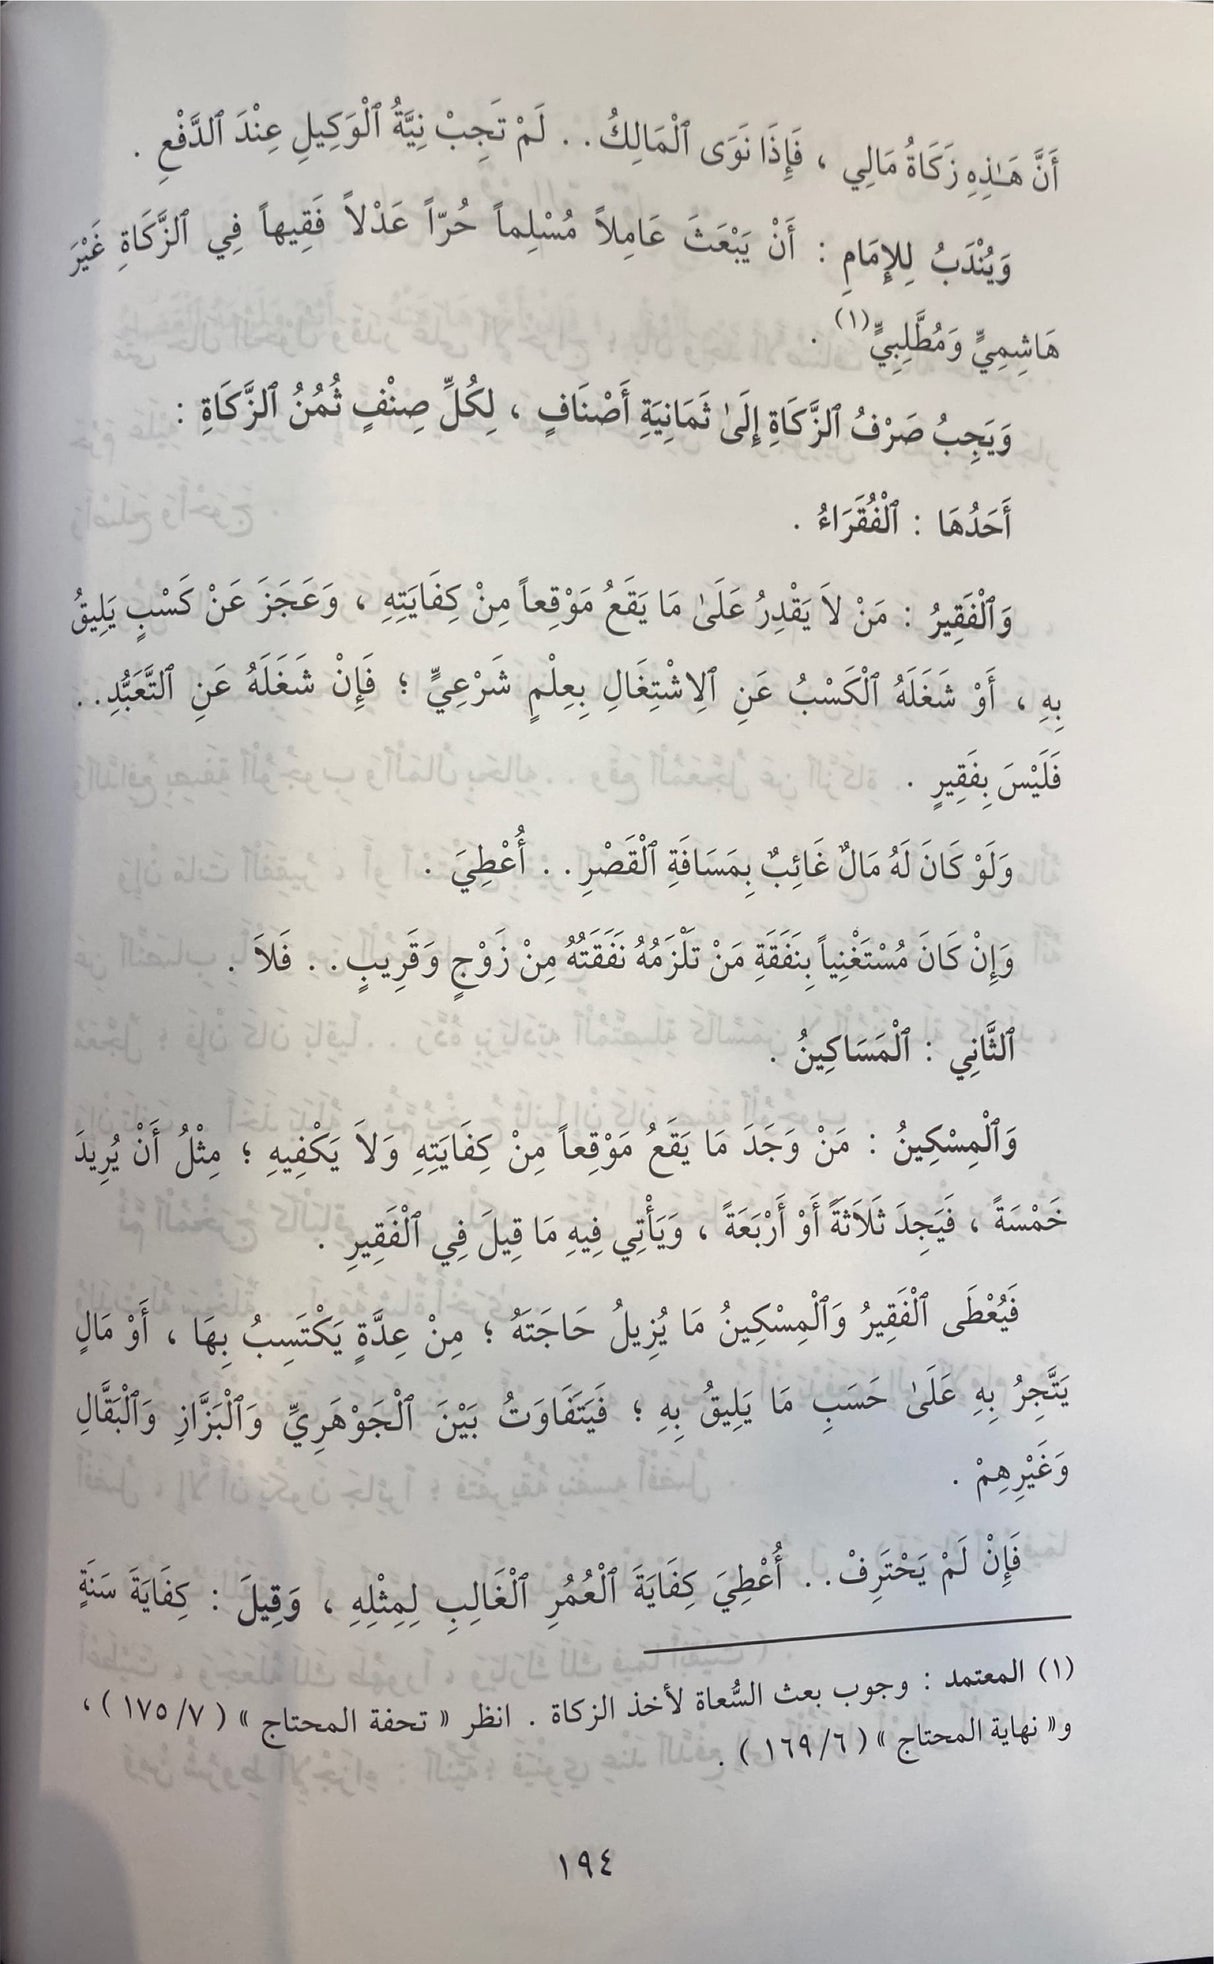 أَنَّ هَـٰذِهِ زَكَاةُ مَالِي ، فَإِذَا نَوَى ٱلْمَالِكُ. . لَمْ تَجِبْ نِيَّةُ ٱلْوَكِيلِ عِنْدَ ٱلدَّفْعِ .
وَيُنْدَبُ لِلإِمَامِ : أَنْ يَبْعَثَ عَامِلاً مُسْلِماً حُرّاً عَدْلاً فَقِيهاً فِي ٱلزَّكَاةِ غَيْرَ
هَاشِمِيٍّ وَمُطَّلِبِيٍّ(١) .
وَيَجِبُ صَرْفُ ٱلزَّكَاةِ إِلَىٰ ثَمَانِيَةِ أَصْنَافٍ ، لِكُلِّ صِنْفٍ ثُمُنُ ٱلزَّكَاةِ :
أَحَدُهَا : ٱلْفُقَرَاءُ .
وَٱلْفَقِيرُ : مَنْ لاَ يَقْدِرُ عَلَىٰ مَا يَقَعُ مَوْقِعاً مِنْ كِفَايَتِهِ ، وَعَجَزَ عَنْ كَسْبٍ يَلِيقُ
بِهِ ، أَوْ شَغَلَهُ ٱلْكَسْبُ عَنِ ٱلِاشْتِغَالِ بِعِلْمٍ شَرْعِيٍّ ؛ فَإِنْ شَغَلَهُ عَنِ ٱلتَّعَبُّدِ. .
فَلَيْسَ بِفَقِيرٍ .
وَلَوْ كَانَ لَهُ مَالٌ غَائِبٌ بِمَسَافَةِ ٱلْقَصْرِ. . أُعْطِيَ .
وَإِنْ كَانَ مُسْتَغْنِياً بِنَفَقَةِ مَنْ تَلْزَمُهُ نَفَقَتُهُ مِنْ زَوْجٍ وَقَرِيبٍ. . فَلاَ .
ٱلثَّانِي : ٱلْمَسَاكِينُ .
وَٱلْمِسْكِينُ : مَنْ وَجَدَ مَا يَقَعُ مَوْقِعاً مِنْ كِفَايَتِهِ وَلاَ يَكْفِيهِ ؛ مِثْلُ أَنْ يُرِيدَ
خَمْسَةً ، فَيَجِدَ ثَلاَثَةً أَوْ أَرْبَعَةً ، وَيَأْتِي فِيهِ مَا قِيلَ فِي ٱلْفَقِيرِ .
فَيُعْطَى ٱلْفَقِيرُ وَٱلْمِسْكِينُ مَا يُزِيلُ حَاجَتَهُ ؛ مِنْ عِدَّةٍ يَكْتَسِبُ بِهَا ، أَوْ مَالٍ
يَتَّجِرُ بِهِ عَلَىٰ حَسَبِ مَا يَلِيقُ بِهِ ؛ فَيَتَفَاوَتُ بَيْنَ ٱلْجَوْهَرِيِّ وَٱلْبَزَّازِ وَٱلْبَقَّالِ
وَغَيْرِهِمْ .
فَإِنْ لَمْ يَحْتَرِفْ. . أُعْطِيَ كِفَايَةَ ٱلْعُمُرِ ٱلْغَالِبِ لِمِثْلِهِ ، وَقِيلَ : كِفَايَةَ سَنَةٍ
(١) المعتمد : وجوب بعث السُّعاة لأخذ الزكاة . انظر « تحفة المحتاج » ( ٧/ ١٧٥ ) ،
و« نهاية المحتاج » ( ٦/ ١٦٩ ) .
١٩٤